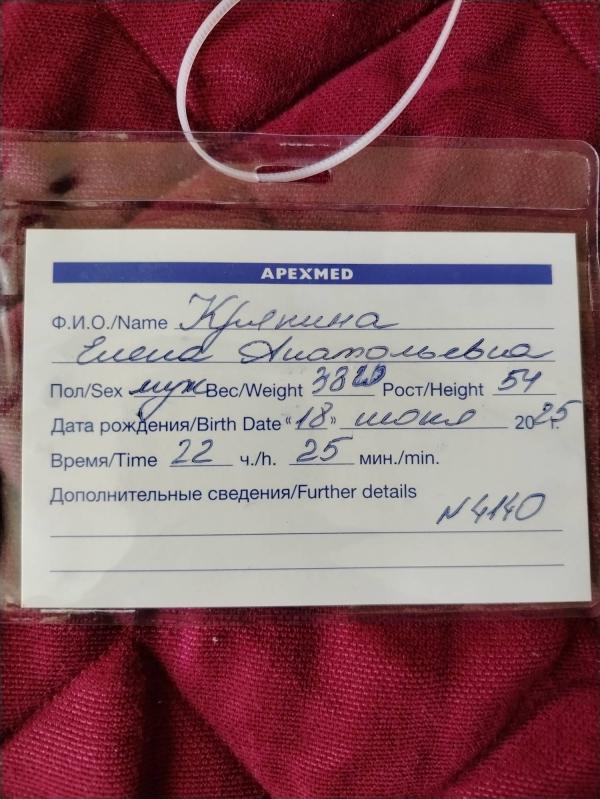 APEXMED
Ф.И.О./Name Крянина
Елена Анатольевна
Пол/Sex муж Вес/Weight 3820 Рост/Height 54
Дата рождения/Birth Date "18" июня 2025г.
Время/Time 22 ч./h. 25 мин./min.
Дополнительные сведения/Further details
N4140